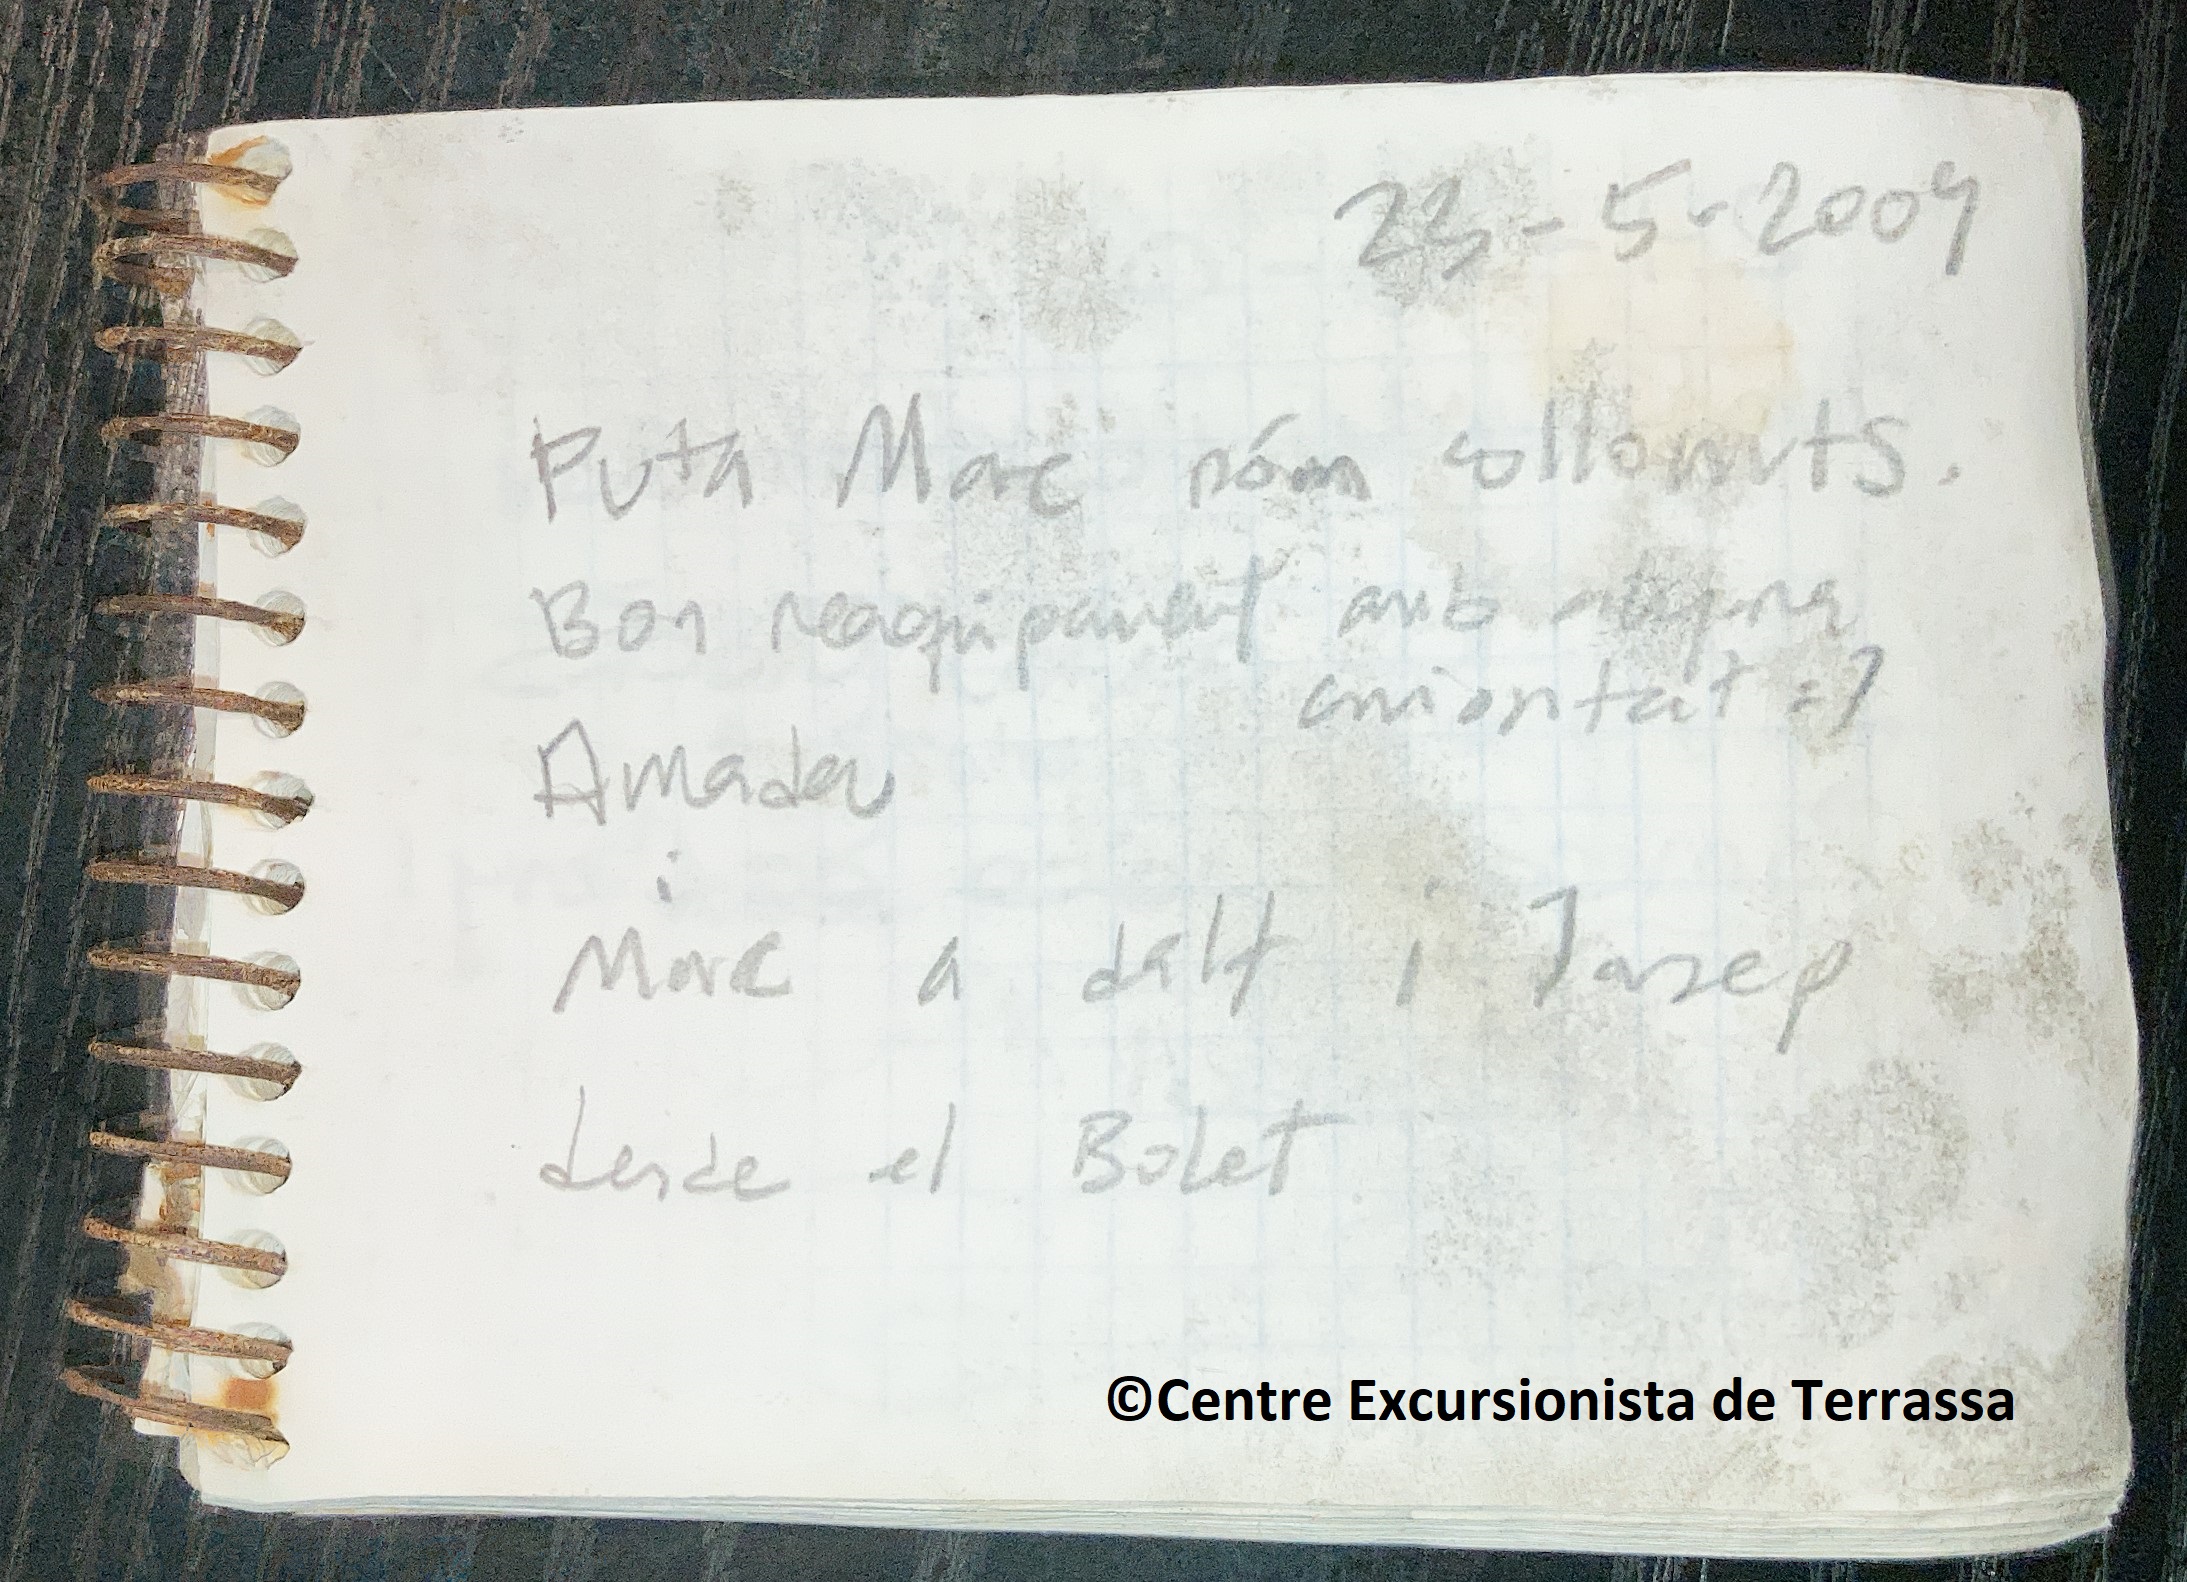 23-5-2009
Puta Marc són collonuts.
Bon reaquipament amb alguna
curiositat =)
Amadeu
i
Marc a dalt i Josep
desde el Bolet
©Centre Excursionista de Terrassa